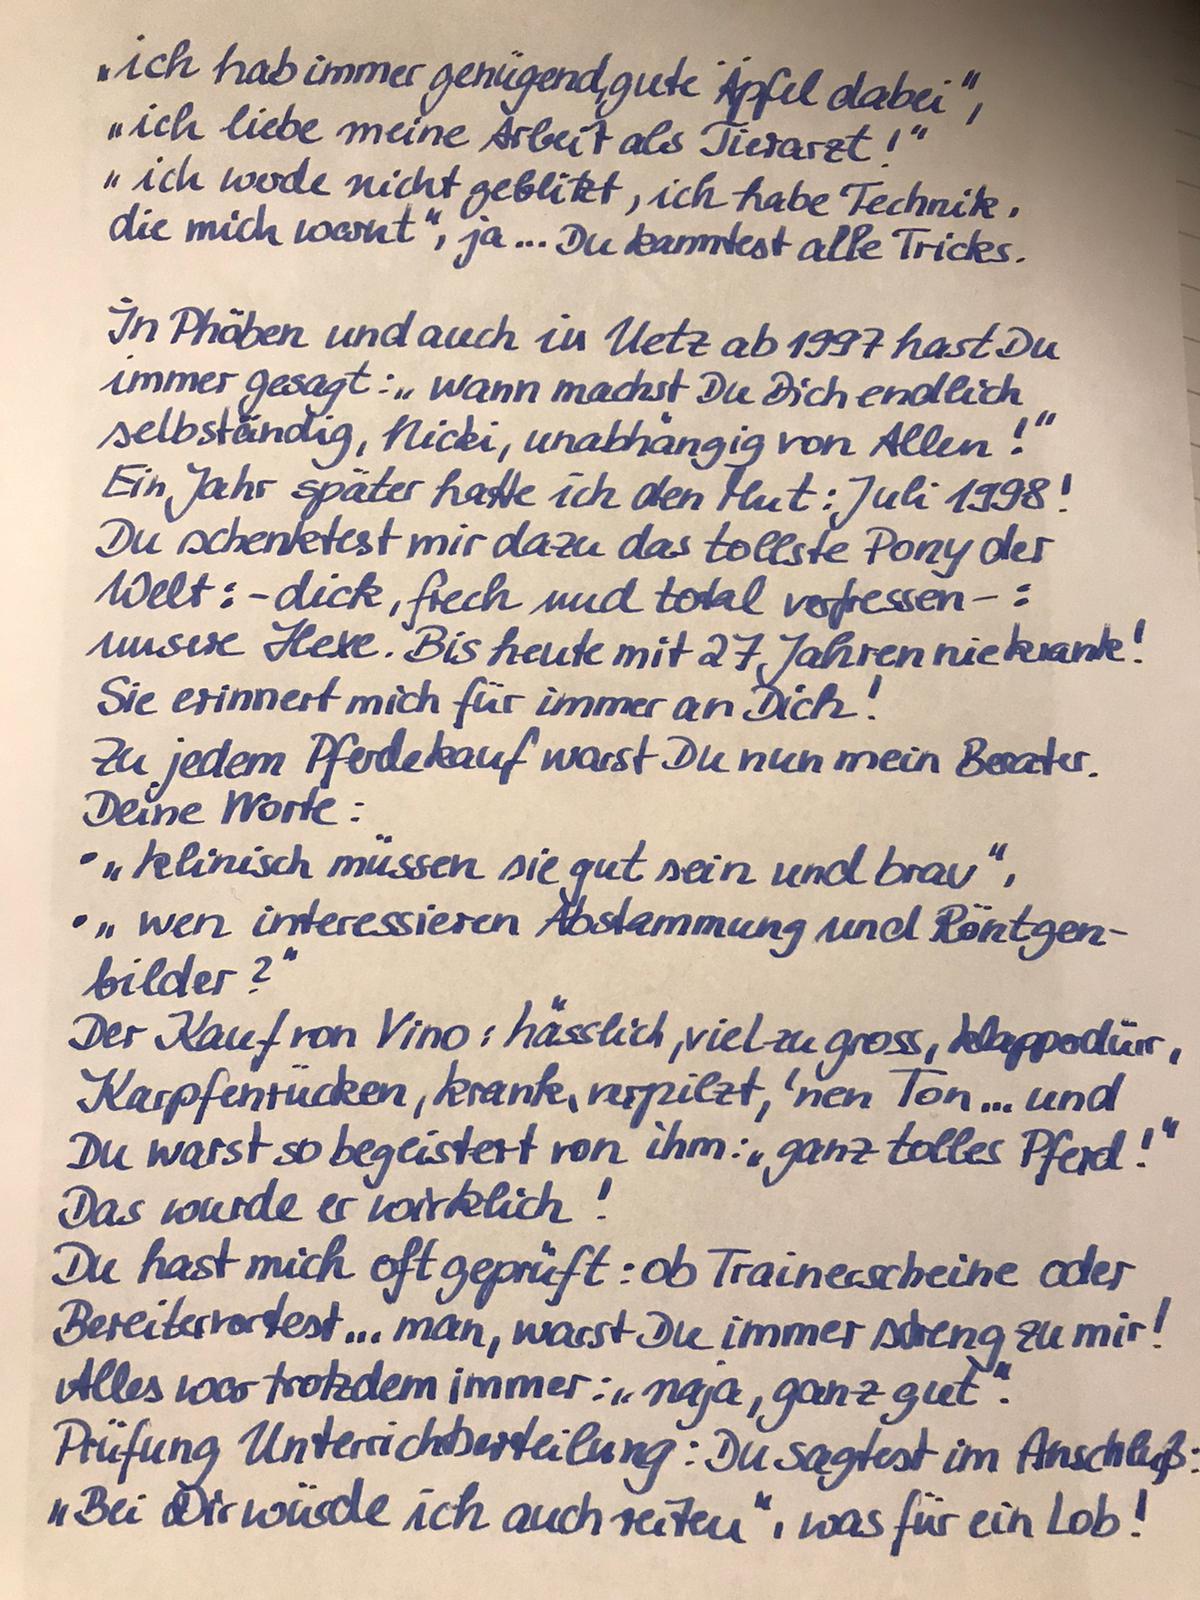 „ich hab immer genügend, gute Äpfel dabei",
„ich liebe meine Arbeit als Tierarzt!"
„ich werde nicht geblitzt, ich habe Technik,
die mich warnt", ja... Du kanntest alle Tricks.
In Phöben und auch in Uetz ab 1997 hast Du
immer gesagt: „wann machst Du Dich endlich
selbständig, Nicki, unabhängig von Allen!"
Ein Jahr später hatte ich den Mut: Juli 1998!
Du schenktest mir dazu das tollste Pony der
Welt: - dick, frech und total verfressen - :
unsere Hexe. Bis heute mit 27 Jahren nie krank!
Sie erinnert mich für immer an Dich!
Zu jedem Pferdekauf warst Du nun mein Berater.
Deine Worte:
• „klinisch müssen sie gut sein und brav",
• „wen interessieren Abstammung und Röntgen-
bilder?"
Der Kauf von Vino: hässlich, viel zu gross, klapperdürr,
Karpfenrücken, krank, verpilzt, 'nen Ton... und
Du warst so begeistert von ihm: „ganz tolles Pferd!"
Das wurde er wirklich!
Du hast mich oft geprüft: ob Trainerscheine oder
Bereitervortest... man, warst Du immer streng zu mir!
Alles war trotzdem immer: „naja, ganz gut".
Prüfung Unterrichtserteilung: Du sagtest im Anschluß:
„Bei Dir würde ich auch reiten", was für ein Lob!